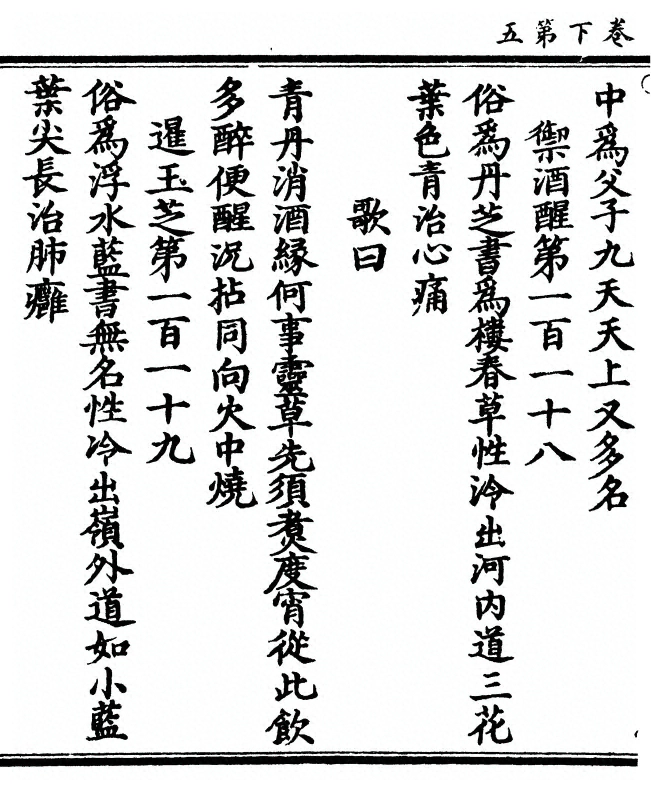 卷下第五
中爲父子九天天上又多名
禦酒醒第一百一十八
俗爲丹芝書爲樓春草性冷出河內道三花
葉色青治心痛
歌曰
青丹消酒緣何事靈草先須煑度宵從此飲
多醉便醒況拈同向火中燒
暹玉芝第一百一十九
俗爲浮水藍書無名性冷出嶺外道如小藍
葉尖長治肺癰